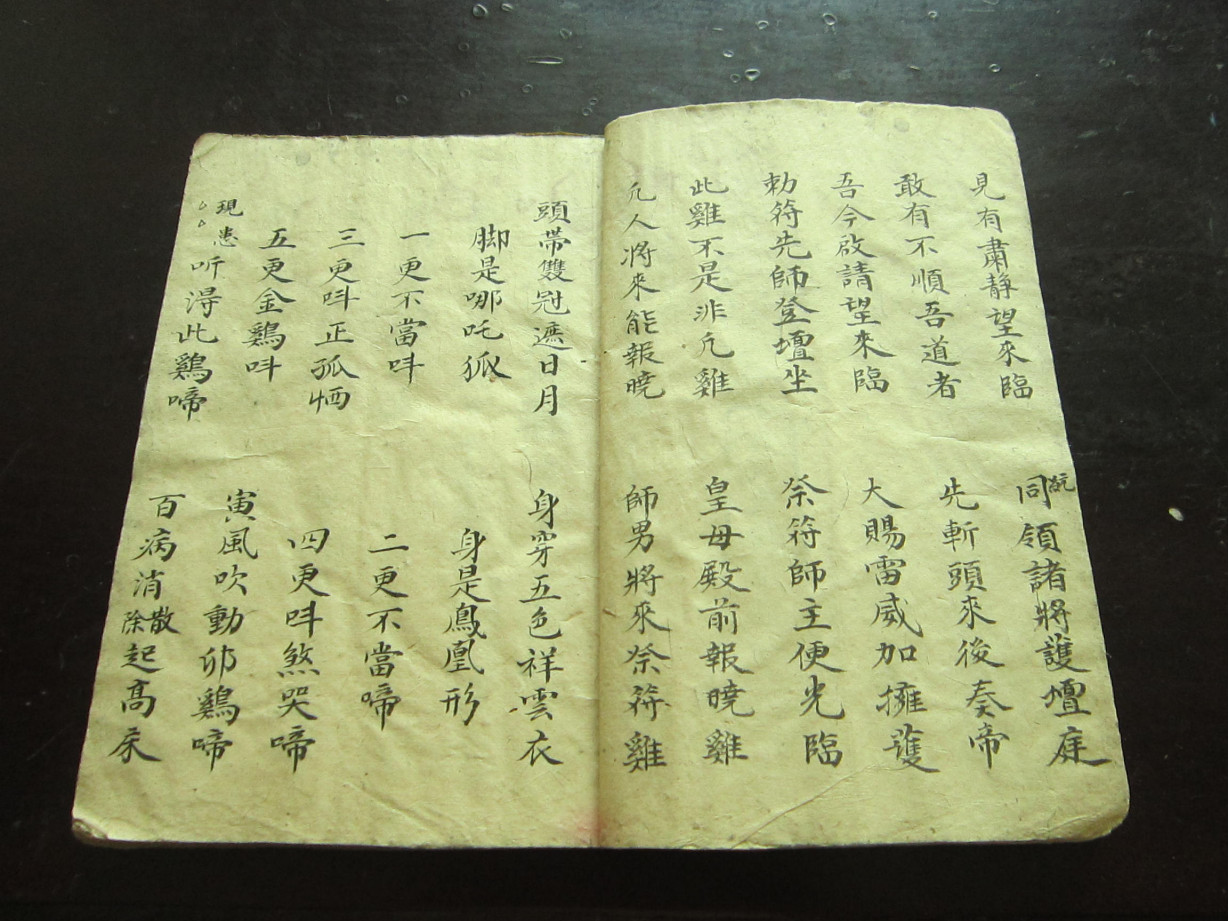 見有肅静望來臨 同領諸將護壇庭
敢有不順吾道者 先斬頭來後奏帝
吾今啟請望來臨 大賜雷威加擁護
勅符先師登壇坐 祭符師主便光臨
此雞不是非凢雞 皇母殿前報曉雞
凢人將來能報曉 師男將來祭符雞
頭帯雙冠遮日月 身穿五色祥雲衣
脚是哪吒狐 身是鳳凰形
一更不當呌 二更不當啼
三更呌正孤恓 四更呌煞哭啼
五更金鷄呌 寅風吹動卯鷄啼
現患听淂此鷄啼 百病消散除起髙床